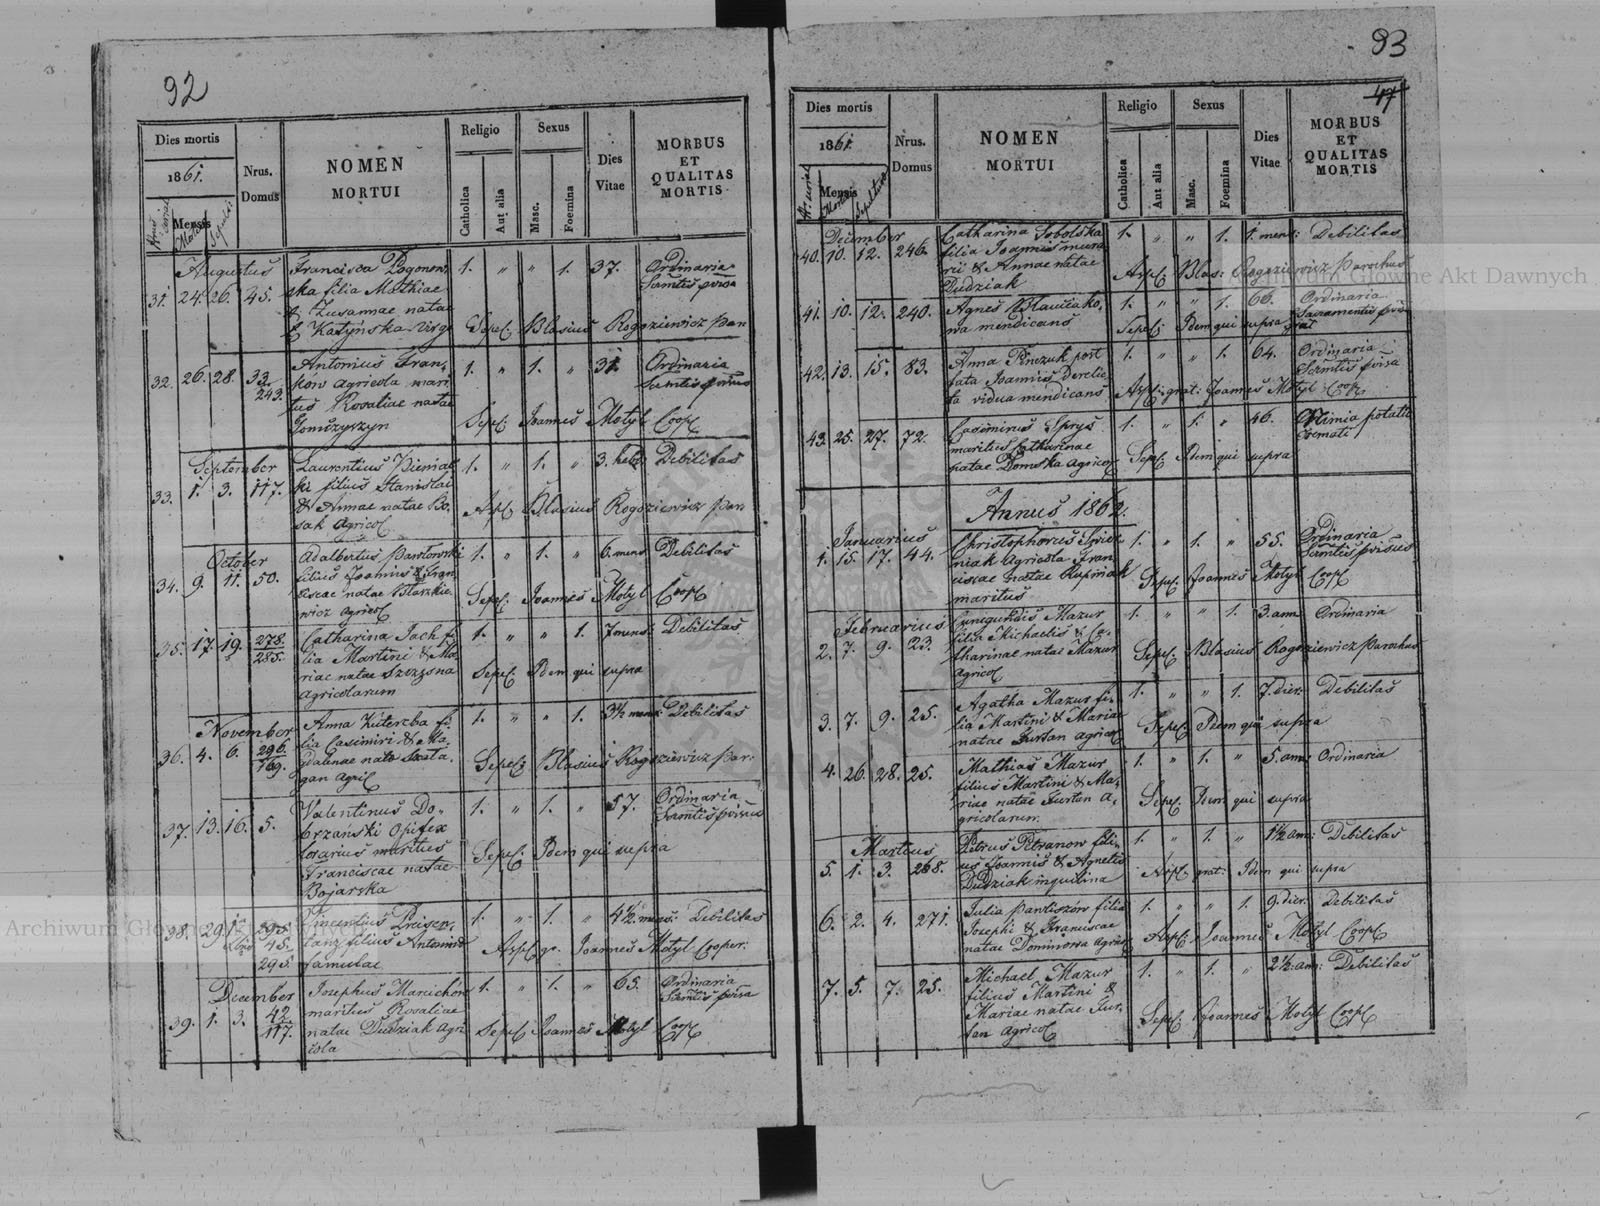 92
Dies mortis
1861.
Nrus. Domus
NOMEN
MORTUI
Religio
Sexus
Catholica
Aut alia
Masc.
Foemina
Dies
Vitae
MORBUS
ET
QUALITAS
MORTIS
Mensis
Augustus
31. 24. 26. 45. Francisca Pogonow
ska filia Mathiae 1. " " 1. 37. Ordinaria
& Zusannae natae
Katyńska virgo Sepel: Blasius Rogoziewicz Par
32. 26. 28. 33/243. Antonius Fran-
ków agricola mari 1. " 1. " 31. Ordinaria
tus Rosaliae natae
Gomszyszyn Sepel: Joannes Motyl Coop
September
33. 1. 3. 117. Laurentius Pieniąż
ki filius Stanislai 1. " 1. " 3. heb: Debilitas
& Annae natae Bo-
sak agricol Asp: Blasius Rogoziewicz Par
October
34. 9. 11. 50. Adalbertus Pawłowski
filius Joannis & Fran 1. " 1. " 6. mens Debilitas
ciscae natae Błaszkie
wicz agricol Sepel: Joannes Motyl Coop
35. 17. 19. 278/285. Catharina Jach fi
lia Martini & Ma 1. " " 1. 7 mens: Debilitas
riae natae
agricolarum Sepel: Idem qui supra
November
36. 4. 6. 296/169. Anna Kuterba fi
lia Casimiri & Ma 1. " " 1. 3½ mens: Debilitas
gdalenae nata Szata-
gan agric Sepel: Blasius Rogoziewicz Par:
37. 13. 16. 5. Valentinus Do-
brzanski Opifex 1. " 1. " 57. Ordinaria
lorarius maritus
Franciscae natae
Bojarska Sepel: Idem qui supra
38. 29. 295/45. 295 Vincentius Preisen
tanz filius Antoninae 1. " 1. " 4½ mens: Debilitas
famulae Asp: gr. Joannes Motyl Cooper:
December
39. 1. 3. 42/117. Josephus Marcichów
maritus Rosaliae 1. " 1. " 65. Ordinaria
natae Dudziak agri
cola Sepel: Joannes Motyl Coop
93
47
Dies mortis
1861.
Nrus.
Domus
NOMEN
MORTUI
Religio
Sexus
Catholica
Aut alia
Masc.
Foemina
Dies
Vitae
MORBUS
ET
QUALITAS
MORTIS
Mensis
December
40. 10. 12. 246. Catharina Sobolska
filia Joannis mura 1. " " 1. 1. mens: Debilitas
rii & Annae natae
Dudziak Asp: Blas: Rogoziewicz Parochus
41. 10. 12. 240. Agnes
wa mendicans 1. " " 1. 66. Ordinaria
Sepel: Idem qui supra grat
42. 13. 15. 83. Anna Pinczuk post
fata Joannis derelic 1. " " 1. 64. Ordinaria
ta vidua mendicans Asp: grat: Joannes Motyl Coop
43. 25. 27. 72. Casimirus Sprys
maritus Catharinae 1. " 1. " 46. Nimia potatio
natae Domska agricol Sepel: Idem qui supra cremati
Annus 1862.
Januarius
1. 15. 17. 44. Christophorus
niak Agricola Fran 1. " 1. " 55. Ordinaria
ciscae natae Rupniak
maritus Sepel: Joannes Motyl Coop
Februarius
2. 7. 9. 23. Cunegundis Mazur
filia Michaelis & Ca- 1. " " 1. 3. ann Ordinaria
tharinae natae Mazur
agricol Sepel: Blasius Rogoziewicz Parochus
3. 7. 9. 25. Agatha Mazur fi-
lia Martini & Mariae 1. " " 1. 7. dier: Debilitas
natae Furtan agricol Sepel: Idem qui supra
4. 26. 28. 25. Mathias Mazur
filius Martini & Ma- 1. " 1. " 5. ann: Ordinaria
riae natae Furtan a-
gricolarum Sepel: Idem qui supra
Martius
5. 1. 3. 268. Petrus Petranow fili-
us Joannis & Agnetis 1. " 1. " 1½ ann: Debilitas
Dudziak inquilina Asp: grat: Idem qui supra
6. 2. 4. 271. Julia Pawliszów filia
Josephi & Franciscae 1. " " 1. 9. dier: Debilitas
natae Dominowa agricol Asp: Joannes Motyl Coop
7. 5. 7. 25. Michael Mazur
filius Martini & 1. " 1. " 2½ ann: Debilitas
Mariae natae Fur-
tan agricol Sepel: Joannes Motyl Coop
Archiwum Główne Akt Dawnych
Archiwum Główne Akt Dawnych